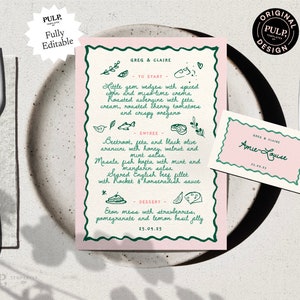 PULP.
Fully
Editable
ORIGINAL
PULP.
DESIGN
GREG & CLAIRE
TO START
Little gem wedges with spiced
corn and miso-lime crema
Roasted aubergine with feta
cream, roasted cherry tomatoes
and crispy oregano
ENTREE
Beetroot, feta, and black olive
arancini with honey, walnut and
mint salsa
Masala fish bake with mint and
mandarin salsa
Seared English beef fillet
with Rocket & horseradish sauce
DESSERT
Eton mess with strawberries,
pomegranate and lemon basil jelly
23.09.25
GREG & CLAIRE
Amie-Louise